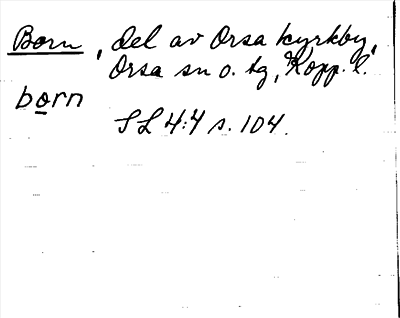 Born, del av Orsa kyrkby,
Orsa sn o. tg, Kopp. l.
born
SL 4:4 s. 104.